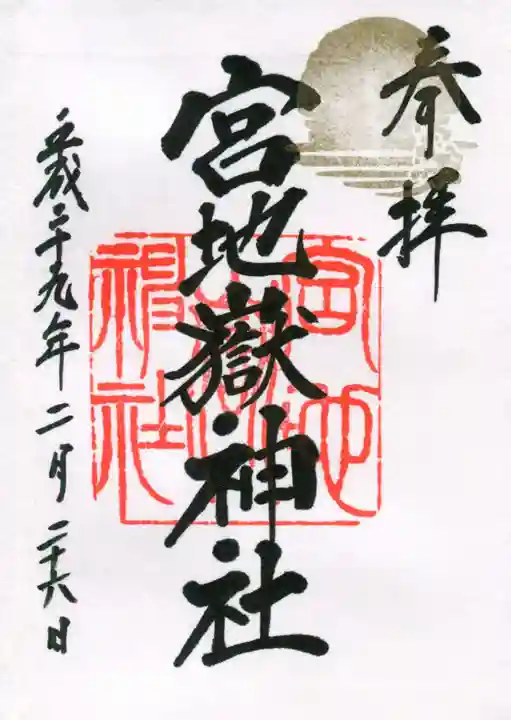 奉拝
宮地嶽神社
平成二十九年二月二十六日
宮地嶽神社